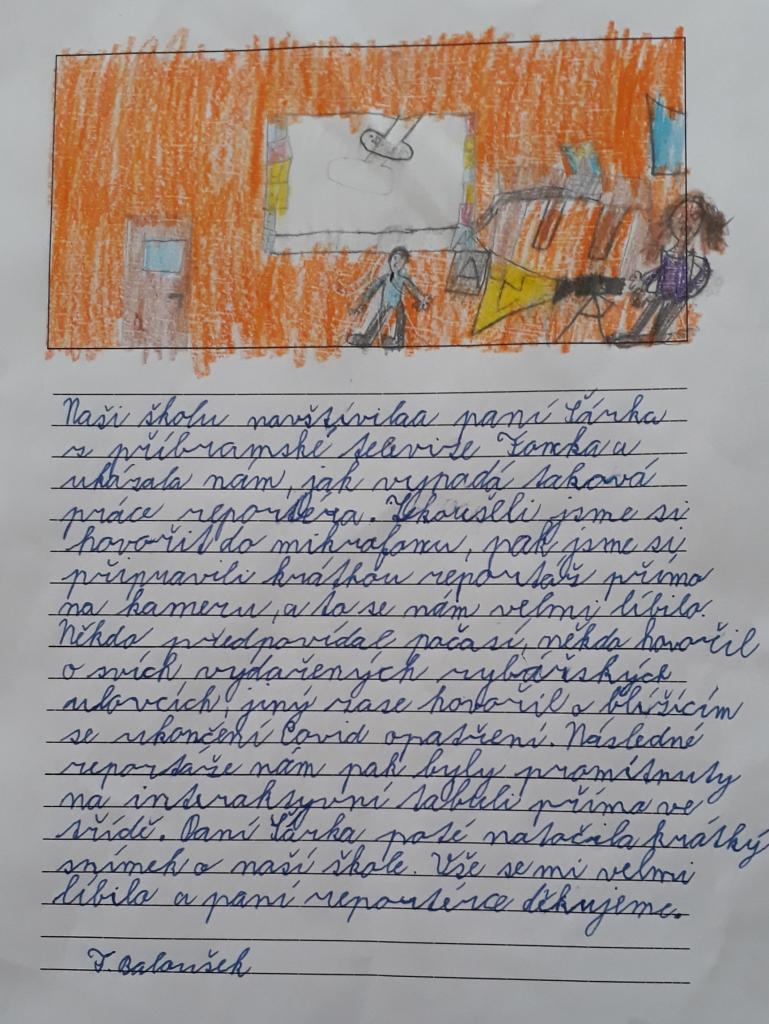 Naši školu navštívilaa paní Šárka
z příbramské televize Fonka a
ukázala nám, jak vypadá taková
práce reportéra. Zkoušeli jsme si
hovořit do mikrofonu, pak jsme si
připravili krátkou reportáž přímo
na kameru, a to se nám velmi líbilo.
Někdo předpovídal počasí, někdo hovořil
o svích vydařených rybářských
ulovcích, jiný zase hovořil o blížícím
se ukončení Covid opatření. Následné
reportáže nám pak byly promítnuty
na interaktyvní tabuli přímo ve
třídě. Paní Šárka poté natočila krátký
snímek o naší škole. Vše se mi velmi
líbilo a paní reportérce děkujeme.
J. Baloušek